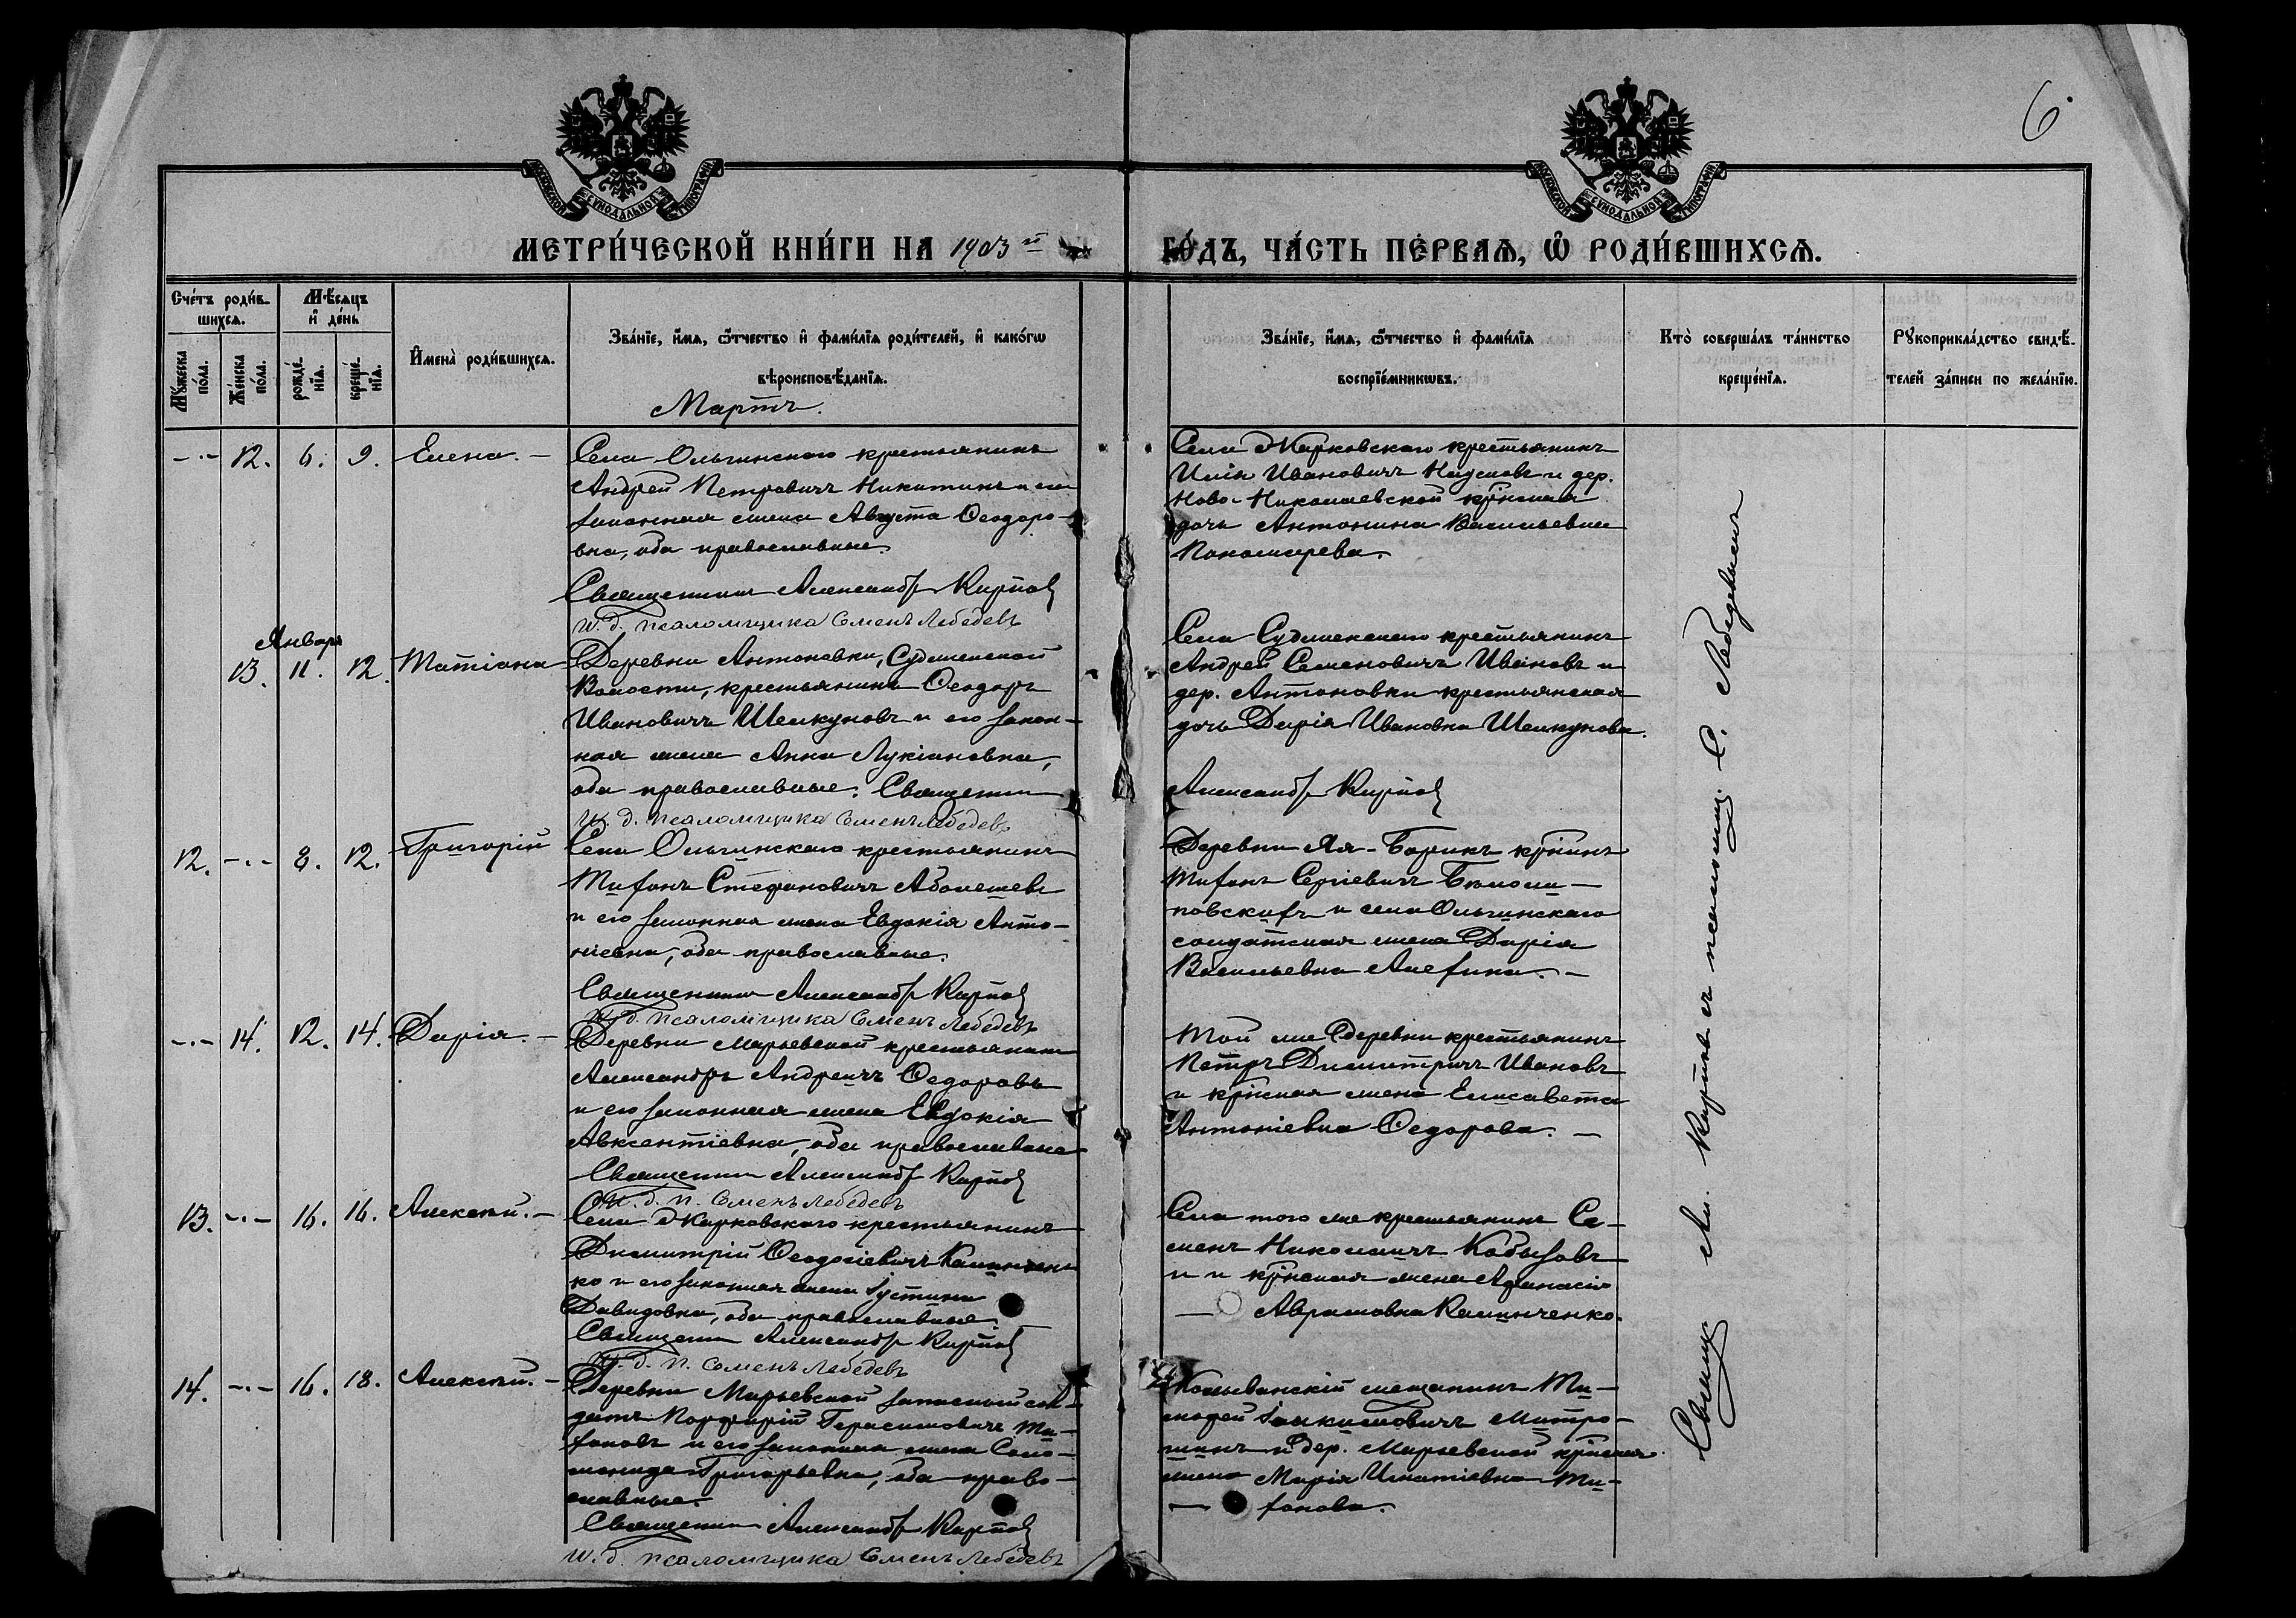 6.
МОСКОВСКОЙ СѴНОДАЛЬНОЙ ТИПОГРАФІИ
МОСКОВСКОЙ СѴНОДАЛЬНОЙ ТИПОГРАФІИ
МЕТРИ́ЧЕСКОЙ КНИ́ГИ НА 1903 й ГО́ДЪ, ЧА́СТЬ ПЕ́РВАѦ, Ѡ҆ РОДИ́ВШИХСѦ.
Сче́тъ роди́в-
шихсѧ.
Мѣ́сѧцъ
и҆ де́нь
Мꙋ́жеска по́ла.
Же́нска по́ла.
рожде́-
нїѧ.
креще́-
нїѧ.
И҆мена̀ роди́вшихсѧ.
Зва́нїе, и҆́мѧ, ѻ҆́тчество и҆ фами́лїѧ роди́телей, и҆ како́гѡ
вѣроисповѣ́данїѧ.
Зва́нїе, и҆́мѧ, ѻ҆́тчество и҆ фами́лїѧ
воспрїе́мникѡвъ.
Кто̀ соверша́лъ та́инство
креще́нїѧ.
Рꙋкоприкла́дство свидѣ́-
телей за́писи по жела́нїю.
Мартъ.
-·- 12. 6. 9. Елена. -
Села Ольгинскаго крестьянинъ
Андрей Петровичъ Никитинъ и его
законная жена Августа Ѳеодоро-
вна, оба православные.
Священникъ Александръ Карповъ
И. д. псаломщика Семенъ Лебедевъ
Села Жарковскаго крестьянинъ
Илія Ивановичъ Наумовъ и дер.
Ново-Николаевской кр҃нская
дочь Антонина Васильевна
Января
13. 11. 12. Татіана
Деревни Антоновки, Судженской
Волости, крестьянинъ Ѳеодоръ
Ивановичъ Шелкуновъ и его закон-
ная жена Анна Лукіановна,
оба православные. Священникъ
И. д. псаломщика Семенъ Лебедевъ
Села Судженскаго крестьянинъ
Андрей Семеновичъ Ивановъ и
дер. Антоновки крестьянская
дочь Дарія Ивановна Шелкунова.
Александръ Карповъ
12. -·- 8. 12. Григорій
Села Ольгинскаго крестьянинъ
Тихонъ Стефановичъ
и его законная жена Евдокія Анто-
ніевна, оба православные.
Священникъ Александръ Карповъ
И. д. псаломщика Семенъ Лебедевъ
Деревни Яя-Борикъ кр҃нинъ
Тихонъ Сергіевичъ
и села Ольгинскаго
солдатская жена Дарія
Васильевна Алехина. -
-·- 14. 12. 14. Дарія. -
Деревни Марьевской крестьянинъ
Александръ Андреичъ Ѳедоровъ
и его законная жена Евдокія
Авксентіевна, оба православные
Священникъ Александръ Карповъ
И. д. п. Семенъ Лебедевъ
Той же деревни крестьянинъ
Петръ Димитричъ Ивановъ
и кр҃нская жена Елисавета
Антоніевна Ѳедорова. -
13. -·- 16. 16. Алексѣй. -
Села Жарковскаго крестьянинъ
Димитрій Ѳеодосіевичъ Калинчен-
ко и его законная жена Іустина
Давидовна, оба православные
Священникъ Александръ Карповъ
И. д. п. Семенъ Лебедевъ
Села того же крестьянинъ Се-
менъ Николаичъ Кобызовъ
и кр҃нская жена Аѳанасія
- Аврамовна Калинченко.
14. -·- 16. 18. Алексѣй. -
Деревни Марьевской запасный сол-
датъ Порфирій Герасимовичъ Ти-
хоновъ и его законная жена Соло-
монида Григорьевна, оба право-
славные.
Священникъ Александръ Карповъ
И. д. псаломщика Семенъ Лебедевъ
Колыванскій мещанинъ Ти-
моѳей Іоакимовичъ Митро-
шинъ и дер. Марьевской кр҃нская
жена Марія Игнатіевна Ти-
- хонова.
Священ. Ал. Карповъ съ псаломщ. С. Лебедевымъ